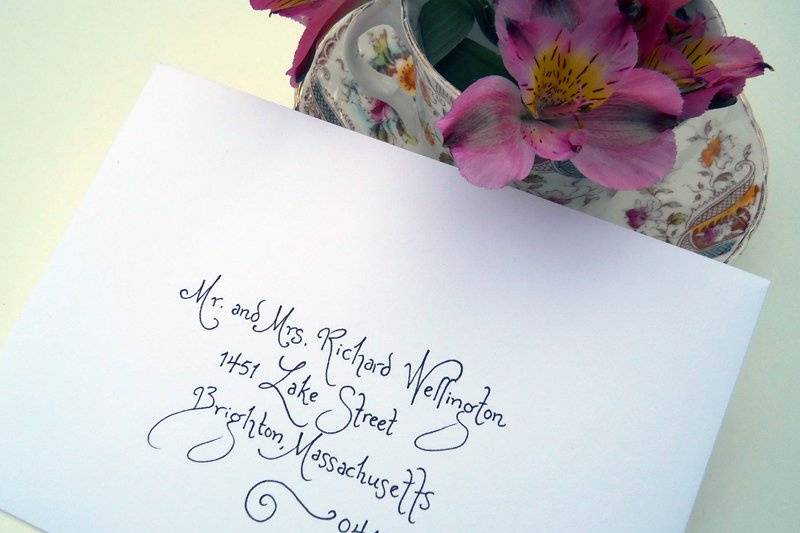 Mr. and Mrs. Richard Wellington
1451 Lake Street
Brighton, Massachusetts